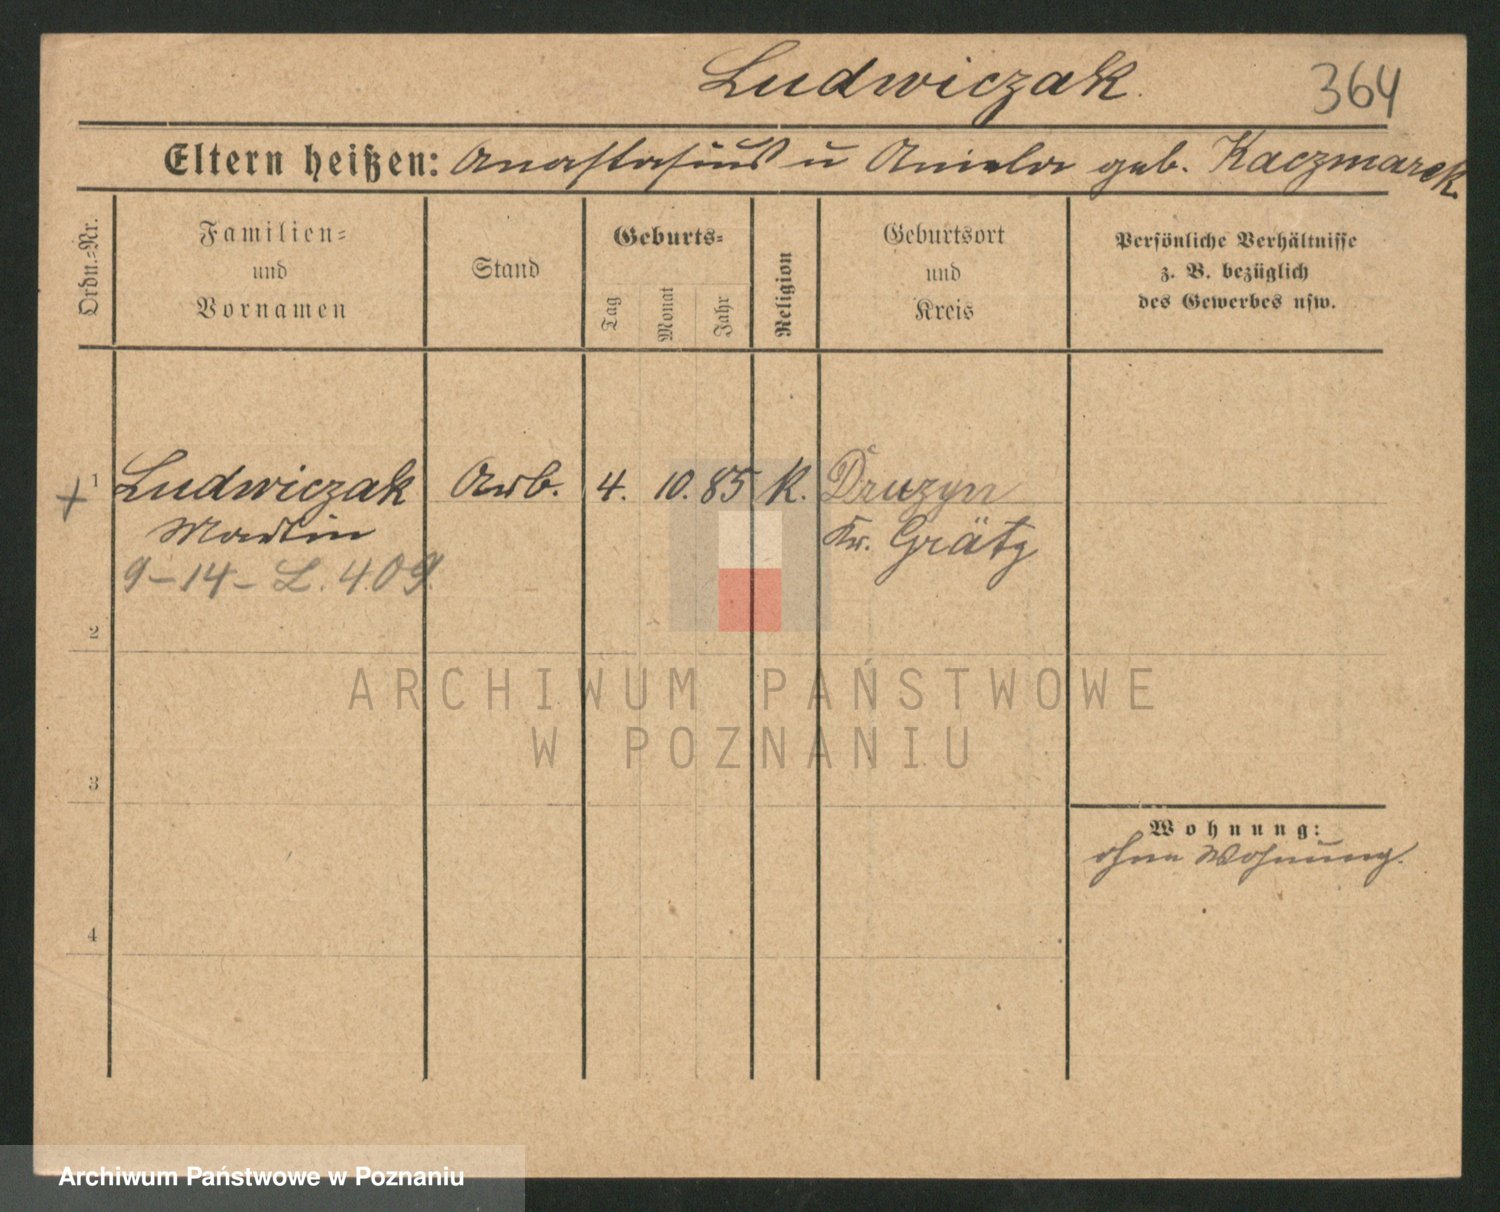 Ludwiczak. 364
Eltern heißen: Anastasius u Aniela geb. Kaczmarek
Ordn.-Nr.
Familien-
und
Vornamen
Stand
Geburts-
Tag
Monat
Jahr
Religion
Geburtsort
und
Kreis
Persönliche Verhältnisse
z. B. bezüglich
des Gewerbes usw.
+ 1 Ludwiczak Arb. 4. 10. 85 K. Druzyn
Martin Kr. Grätz
9-14- L. 4.09.
2
3
Wohnung:
ohne Wohnung.
4
ARCHIWUM PAŃSTWOWE
W POZNANIU
Archiwum Państwowe w Poznaniu